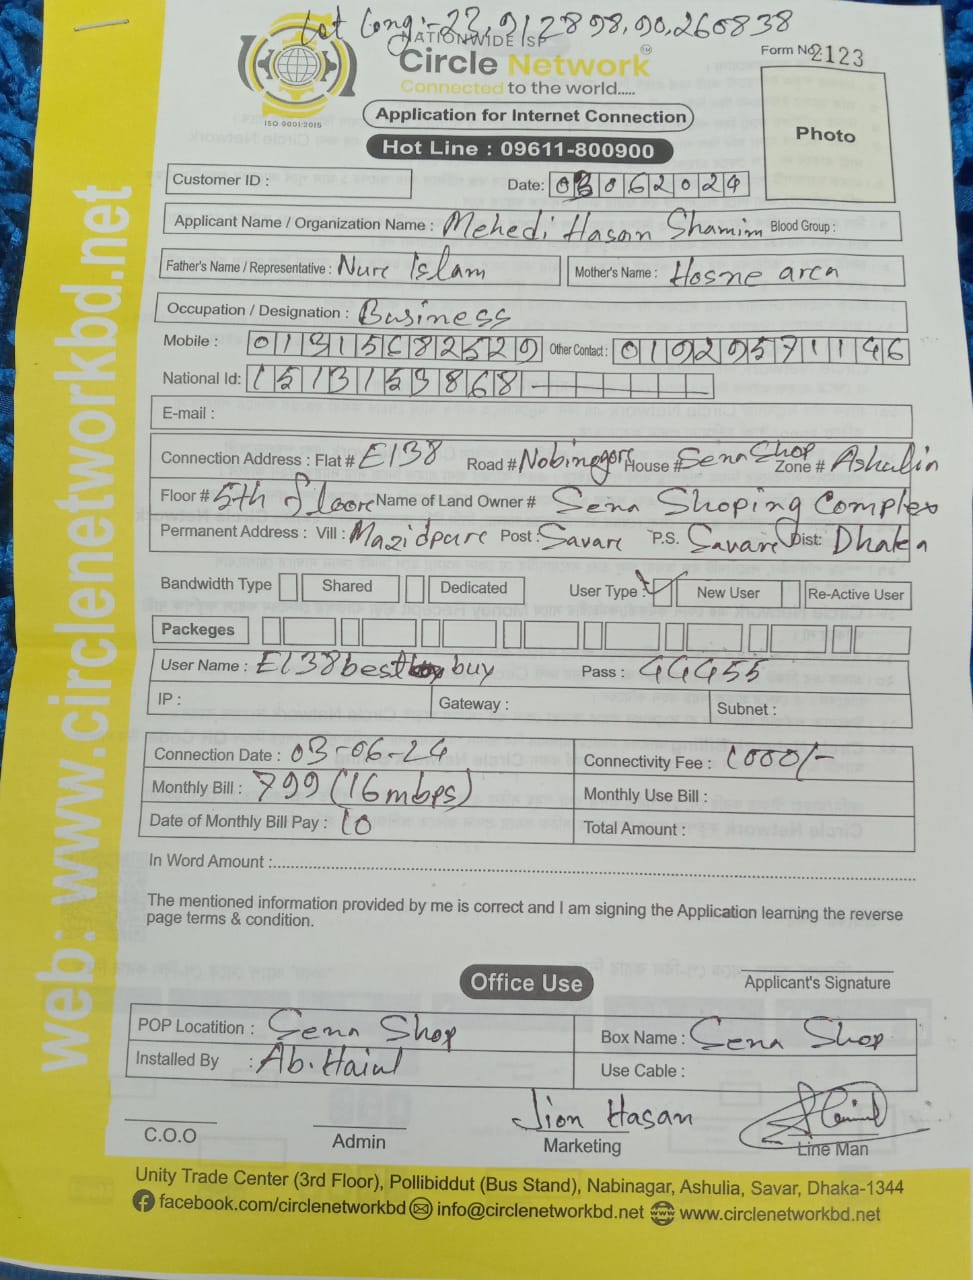 Lat Long:- 23.912898,90.260838
NATIONWIDE ISP
Circle Network™
Connected to the world.....
ISO 9001:2015
Form No: 2123
Application for Internet Connection
Photo
Hot Line : 09611-800900
Customer ID :
Date: 03062024
Applicant Name / Organization Name : Mehedi Hasan Shamim Blood Group :
Father's Name / Representative : Nure Islam Mother's Name : Hosne area
Occupation / Designation : Business
Mobile : 01315682529 Other Contact : 01929571146
National Id: 1513153868
E-mail :
Connection Address : Flat # E138 Road # Nobinegore House # Sena Shop Zone # Ashulia
Floor # 5th floore Name of Land Owner # Sena Shoping Complex
Permanent Address : Vill : Mazidpure Post : Savare P.S. Savare Dist: Dhaka
Bandwidth Type Shared Dedicated User Type : New User Re-Active User
Packeges
User Name : E138best buy Pass : 44455
IP : Gateway : Subnet :
Connection Date : 03-06-24 Connectivity Fee : 1000/-
Monthly Bill : 799 (16mbps) Monthly Use Bill :
Date of Monthly Bill Pay : 10 Total Amount :
In Word Amount :
The mentioned information provided by me is correct and I am signing the Application learning the reverse
page terms & condition.
Office Use
Applicant's Signature
POP Locatition : Sena Shop Box Name : Sena Shop
Installed By : Ab. Haiul Use Cable :
Jion Hasan
C.O.O Admin Marketing Line Man
Unity Trade Center (3rd Floor), Pollibiddut (Bus Stand), Nabinagar, Ashulia, Savar, Dhaka-1344
facebook.com/circlenetworkbd info@circlenetworkbd.net www.circlenetworkbd.net
web: www.circlenetworkbd.net